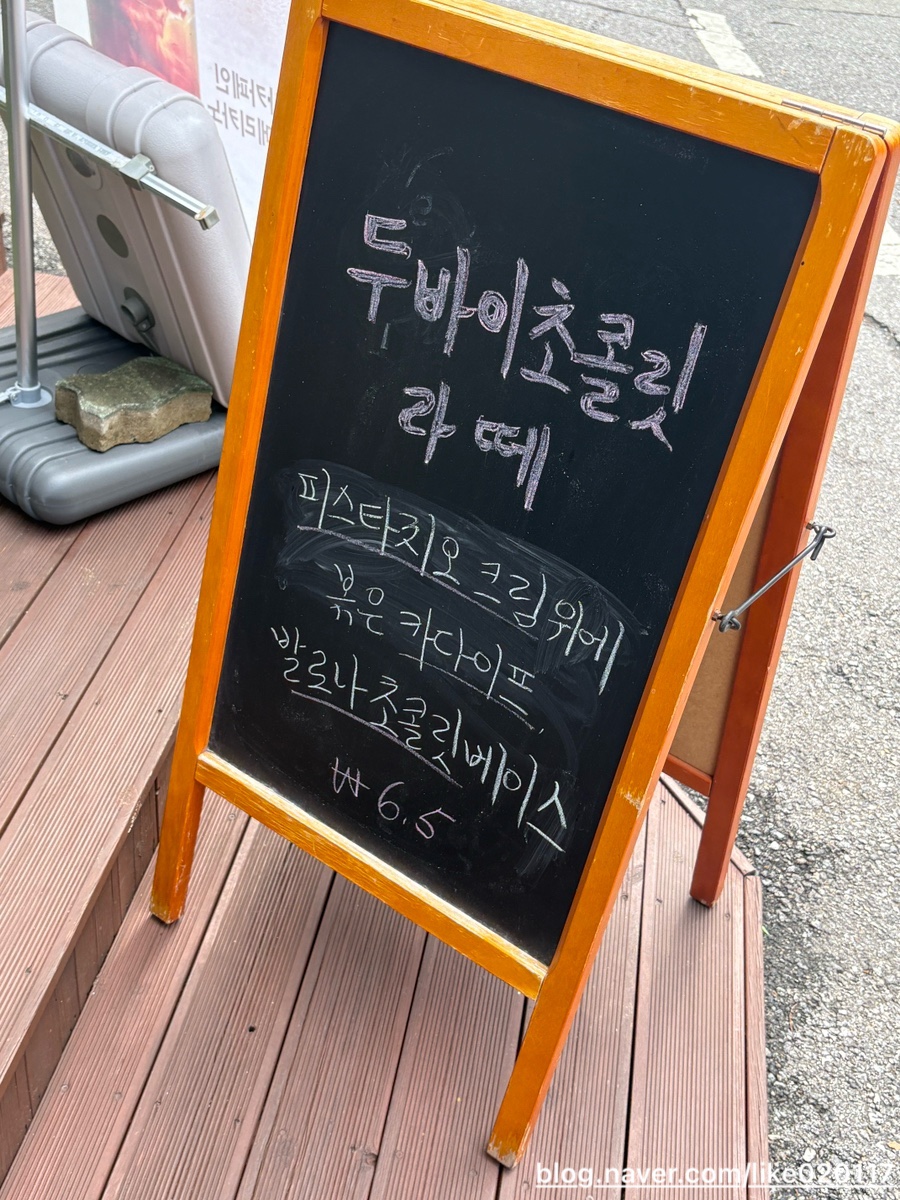 두바이초콜릿
라떼
피스타치오 크림위에
볶은 카다이프
발로나 초콜릿베이스
₩ 6.5
blog.naver.com/like020117